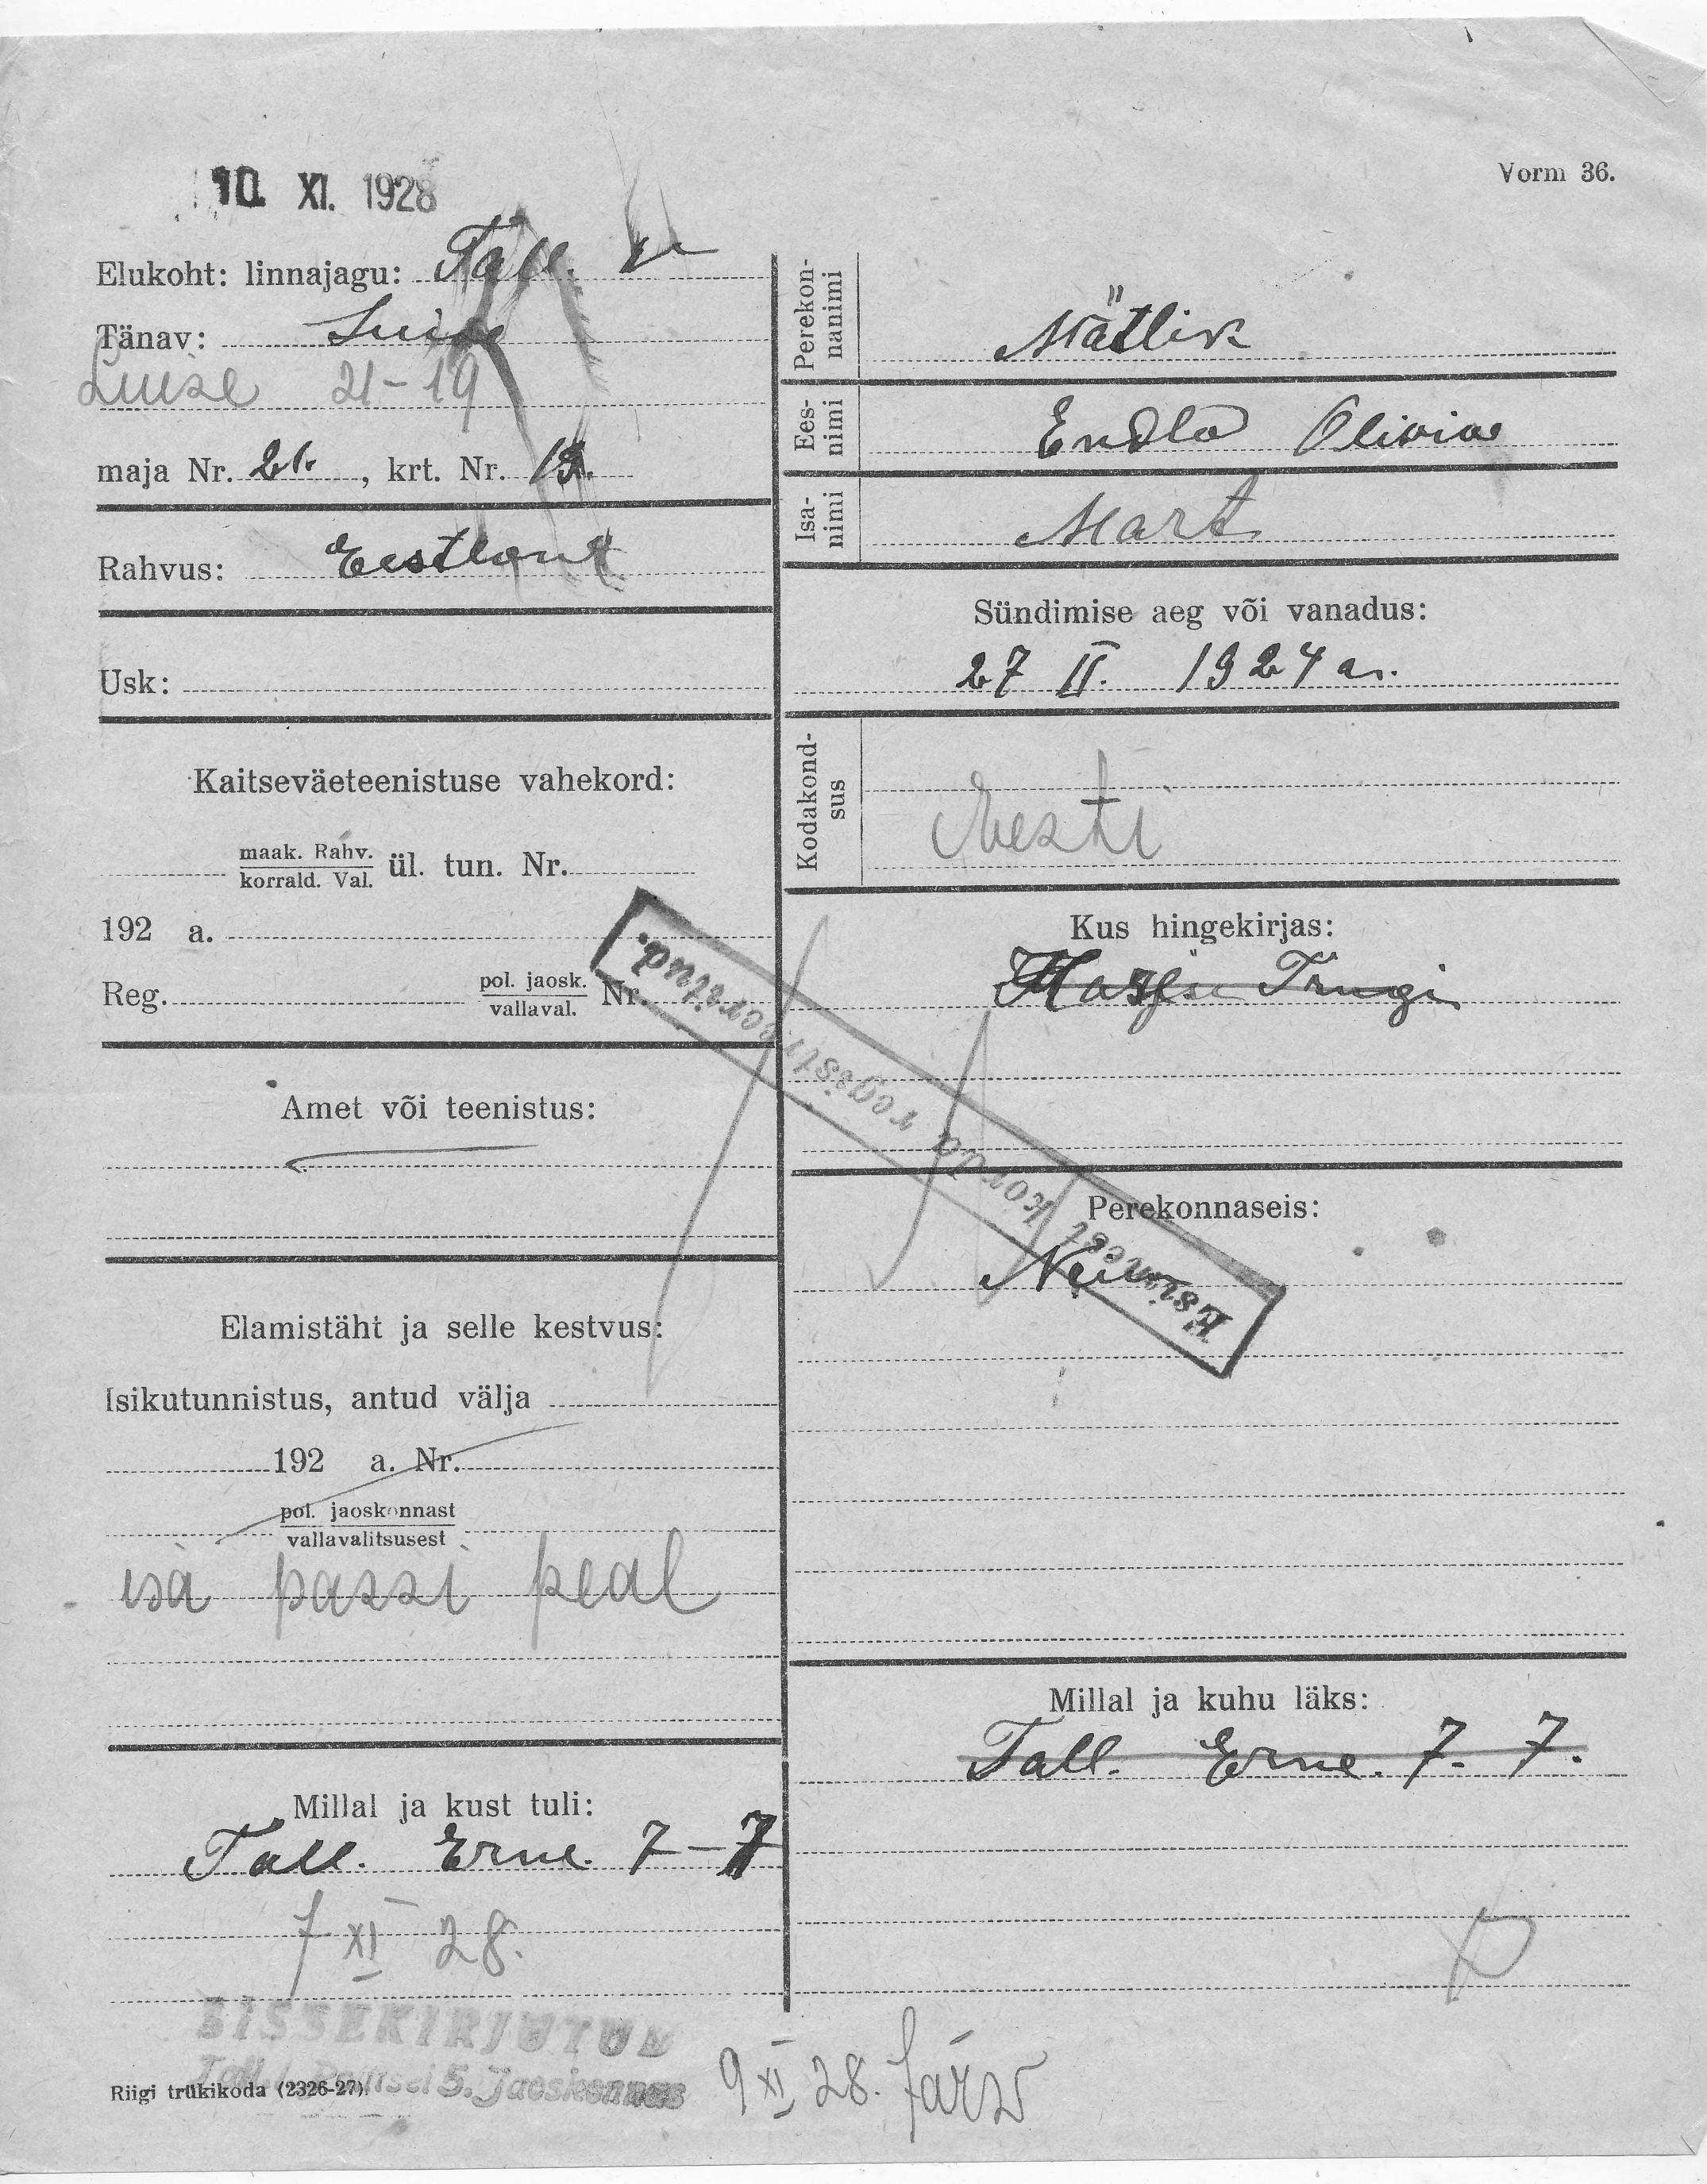 10. XI. 1928
Vorm 36.
Elukoht: linnajagu: Tall.
Tänav: Luise
Luise 21-19
maja Nr. 21. , krt. Nr. 19.
Rahvus: Eestlane
Usk:
Kaitseväeteenistuse vahekord:
maak. Rahv.
korrald. Val. ül. tun. Nr.
192 a.
Reg. pol. jaosk.
vallaval. Nr.
Amet või teenistus:
Elamistäht ja selle kestvus:
Isikutunnistus, antud välja
192 a. Nr.
pol. jaoskonnast
vallavalitsusest
isa passi peal
Millal ja kust tuli:
Tall. Erne. 7-7
7 XI 28.
SISSEKIRJUTUD
Tall. Politsei 5. Jaoskonnas
Riigi trükikoda (2326-27).
9 XI 28.
Perekon-
nanimi
Mätlik
Ees-
nimi
Endla Olivia
Isa-
nimi
Mart
Sündimise aeg või vanadus:
27 II. 1924 a.
Kodakond-
sus
Eesti
Kus hingekirjas:
Harju
Esimest korda registreeritud.
Perekonnaseis:
Millal ja kuhu läks:
Tall. Erne. 7. 7.